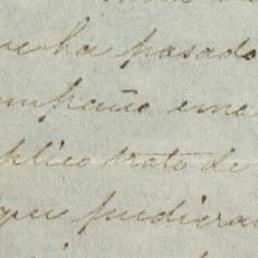 ve ha pasado
compaño una
plico trato de
que pudiera